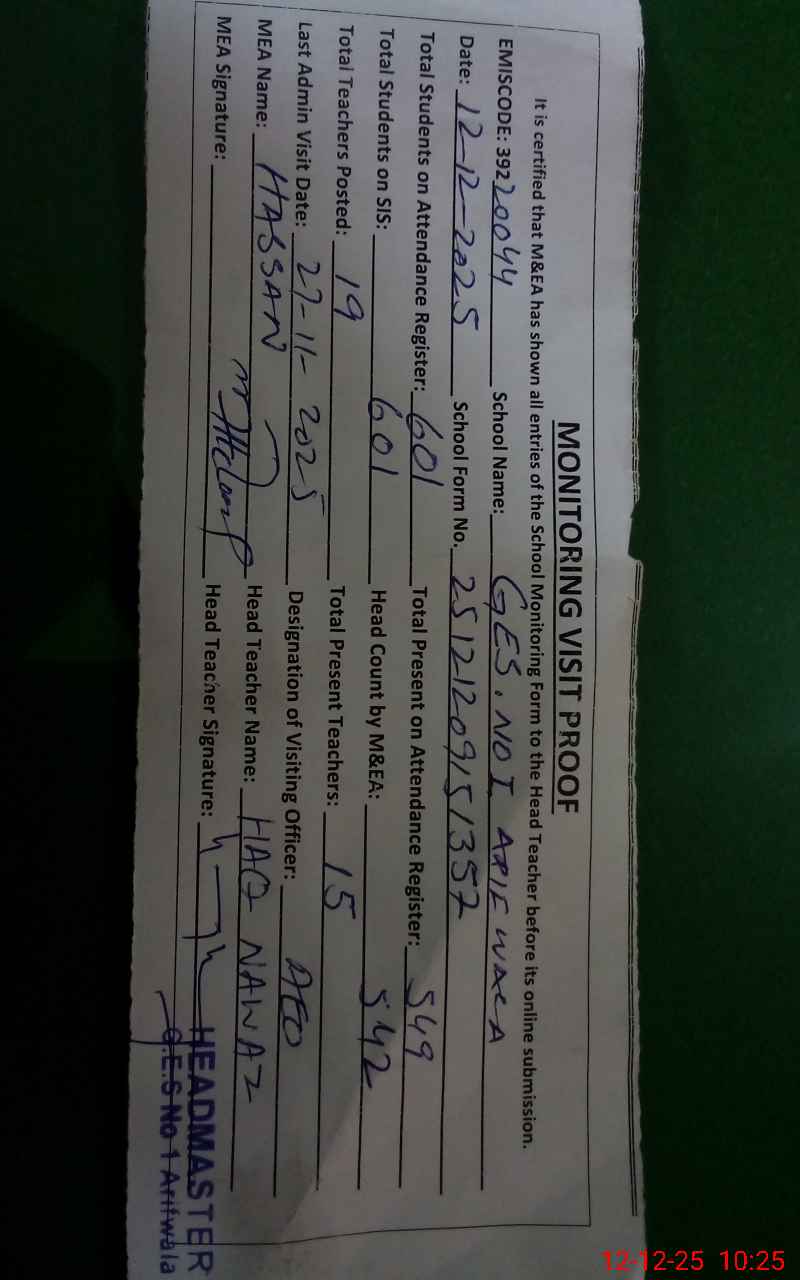 MONITORING VISIT PROOF
It is certified that M&EA has shown all entries of the School Monitoring Form to the Head Teacher before its online submission.
EMISCODE: 39220044 School Name: GES. NO I ARIFWALA
Date: 12-12-2025 School Form No. 2512120915 1357
Total Students on Attendance Register: 601 Total Present on Attendance Register: 549
Total Students on SIS: 601 Head Count by M&EA: 542
Total Teachers Posted: 19 Total Present Teachers: 15
Last Admin Visit Date: 27-11-2025 Designation of Visiting Officer: AEO
MEA Name: HASSAN Head Teacher Name: HAQ NAWAZ
MEA Signature: Head Teacher Signature:
HEADMASTER
G.E.S No 1 Arifwala
12-12-25 10:25